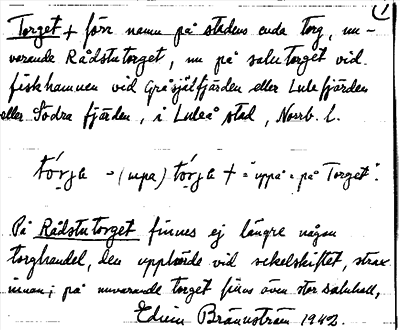 1
Torget + förr namn på stadens enda torg, nu-
varande Rådstutorget, nu på salutorget vid
fiskhamnen vid Gråsjälfjärden eller Lulefjärden
eller Södra fjärden, i Luleå stad, Norrb. l.
tórja - (upa) tórja + = "uppå = på Torget".
På Rådstutorget finnes ej längre någon
torghandel, den upphörde vid sekelskiftet, strax
innan; på nuvarande torget finns även stor saluhall,
Edvin Brännström 1942.